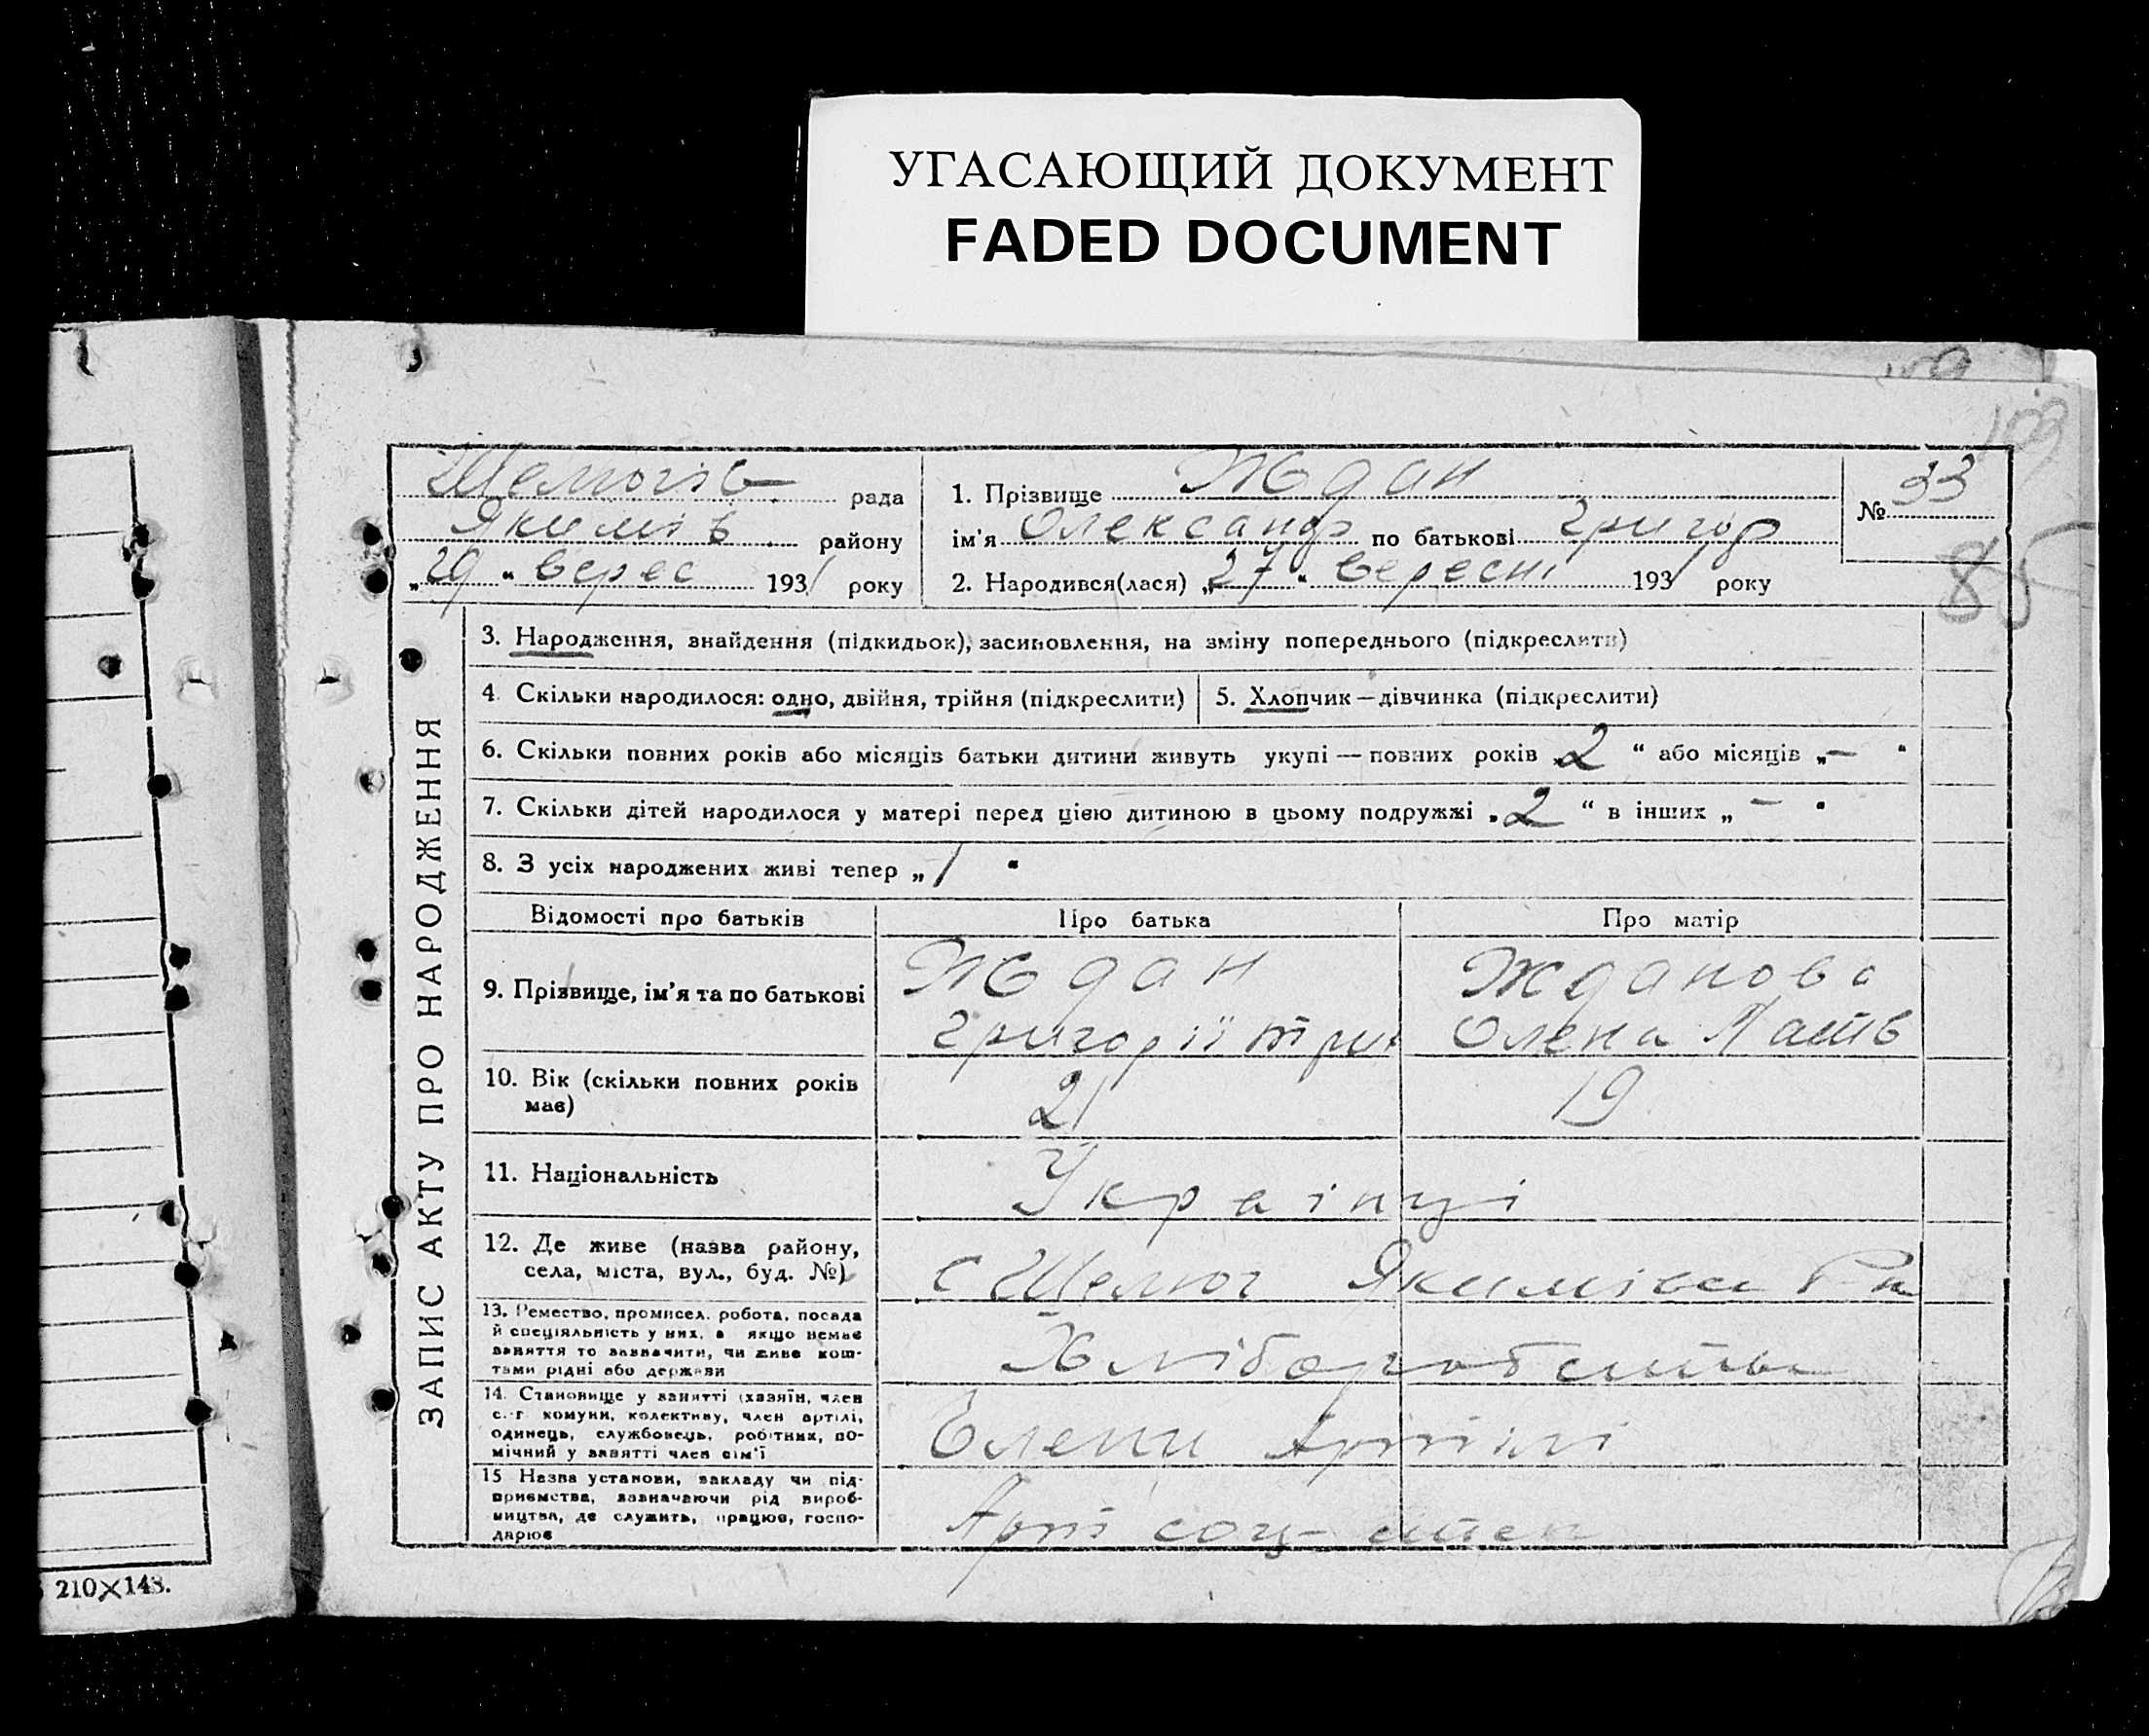 УГАСАЮЩИЙ ДОКУМЕНТ
FADED DOCUMENT
109
Шелюгів рада
Якимів району
„29“ верес 1931 року
1. Прізвище Ждан
ім'я Олександр по батькові Григор
2. Народився(лася) „27“ вересні 1931 року
№ 33
85
ЗАПИС АКТУ ПРО НАРОДЖЕННЯ
3. Народження, знайдення (підкидьок), засиновлення, на зміну попереднього (підкреслити)
4. Скільки народилося: одно, двійня, трійня (підкреслити)
5. Хлопчик — дівчинка (підкреслити)
6. Скільки повних років або місяців батьки дитини живуть укупі — повних років „2“ або місяців „—“
7. Скільки дітей народилося у матері перед цією дитиною в цьому подружжі „2“ в інших „—“
8. З усіх народжених живі тепер „1“
Відомості про батьків
Про батька
Про матір
9. Прізвище, ім'я та по батькові
Ждан
Григорій
Жданова
Олена
10. Вік (скільки повних років
має)
21
19
11. Національність
Українці
12. Де живе (назва району,
села, міста, вул., буд. №)
с Шелюг Якимівск Рн
13. Ремество, промисел, робота, посада
й спеціяльність у них, а якщо немає
заняття то зазначити, чи живе кош-
тами рідні або держави
Хліборобство
14. Становище у занятті (хазяїн, член
с.-г комуни, колективу, член артілі,
одинець, службовець, робітник, по-
мічний у занятті член сім'ї
Члени Артілі
15 Назва установи, закладу чи під-
приємства, зазначаючи рід вироб-
ництва, де служить, працює, госпо-
дарює
Арт соц- степ
210×148.